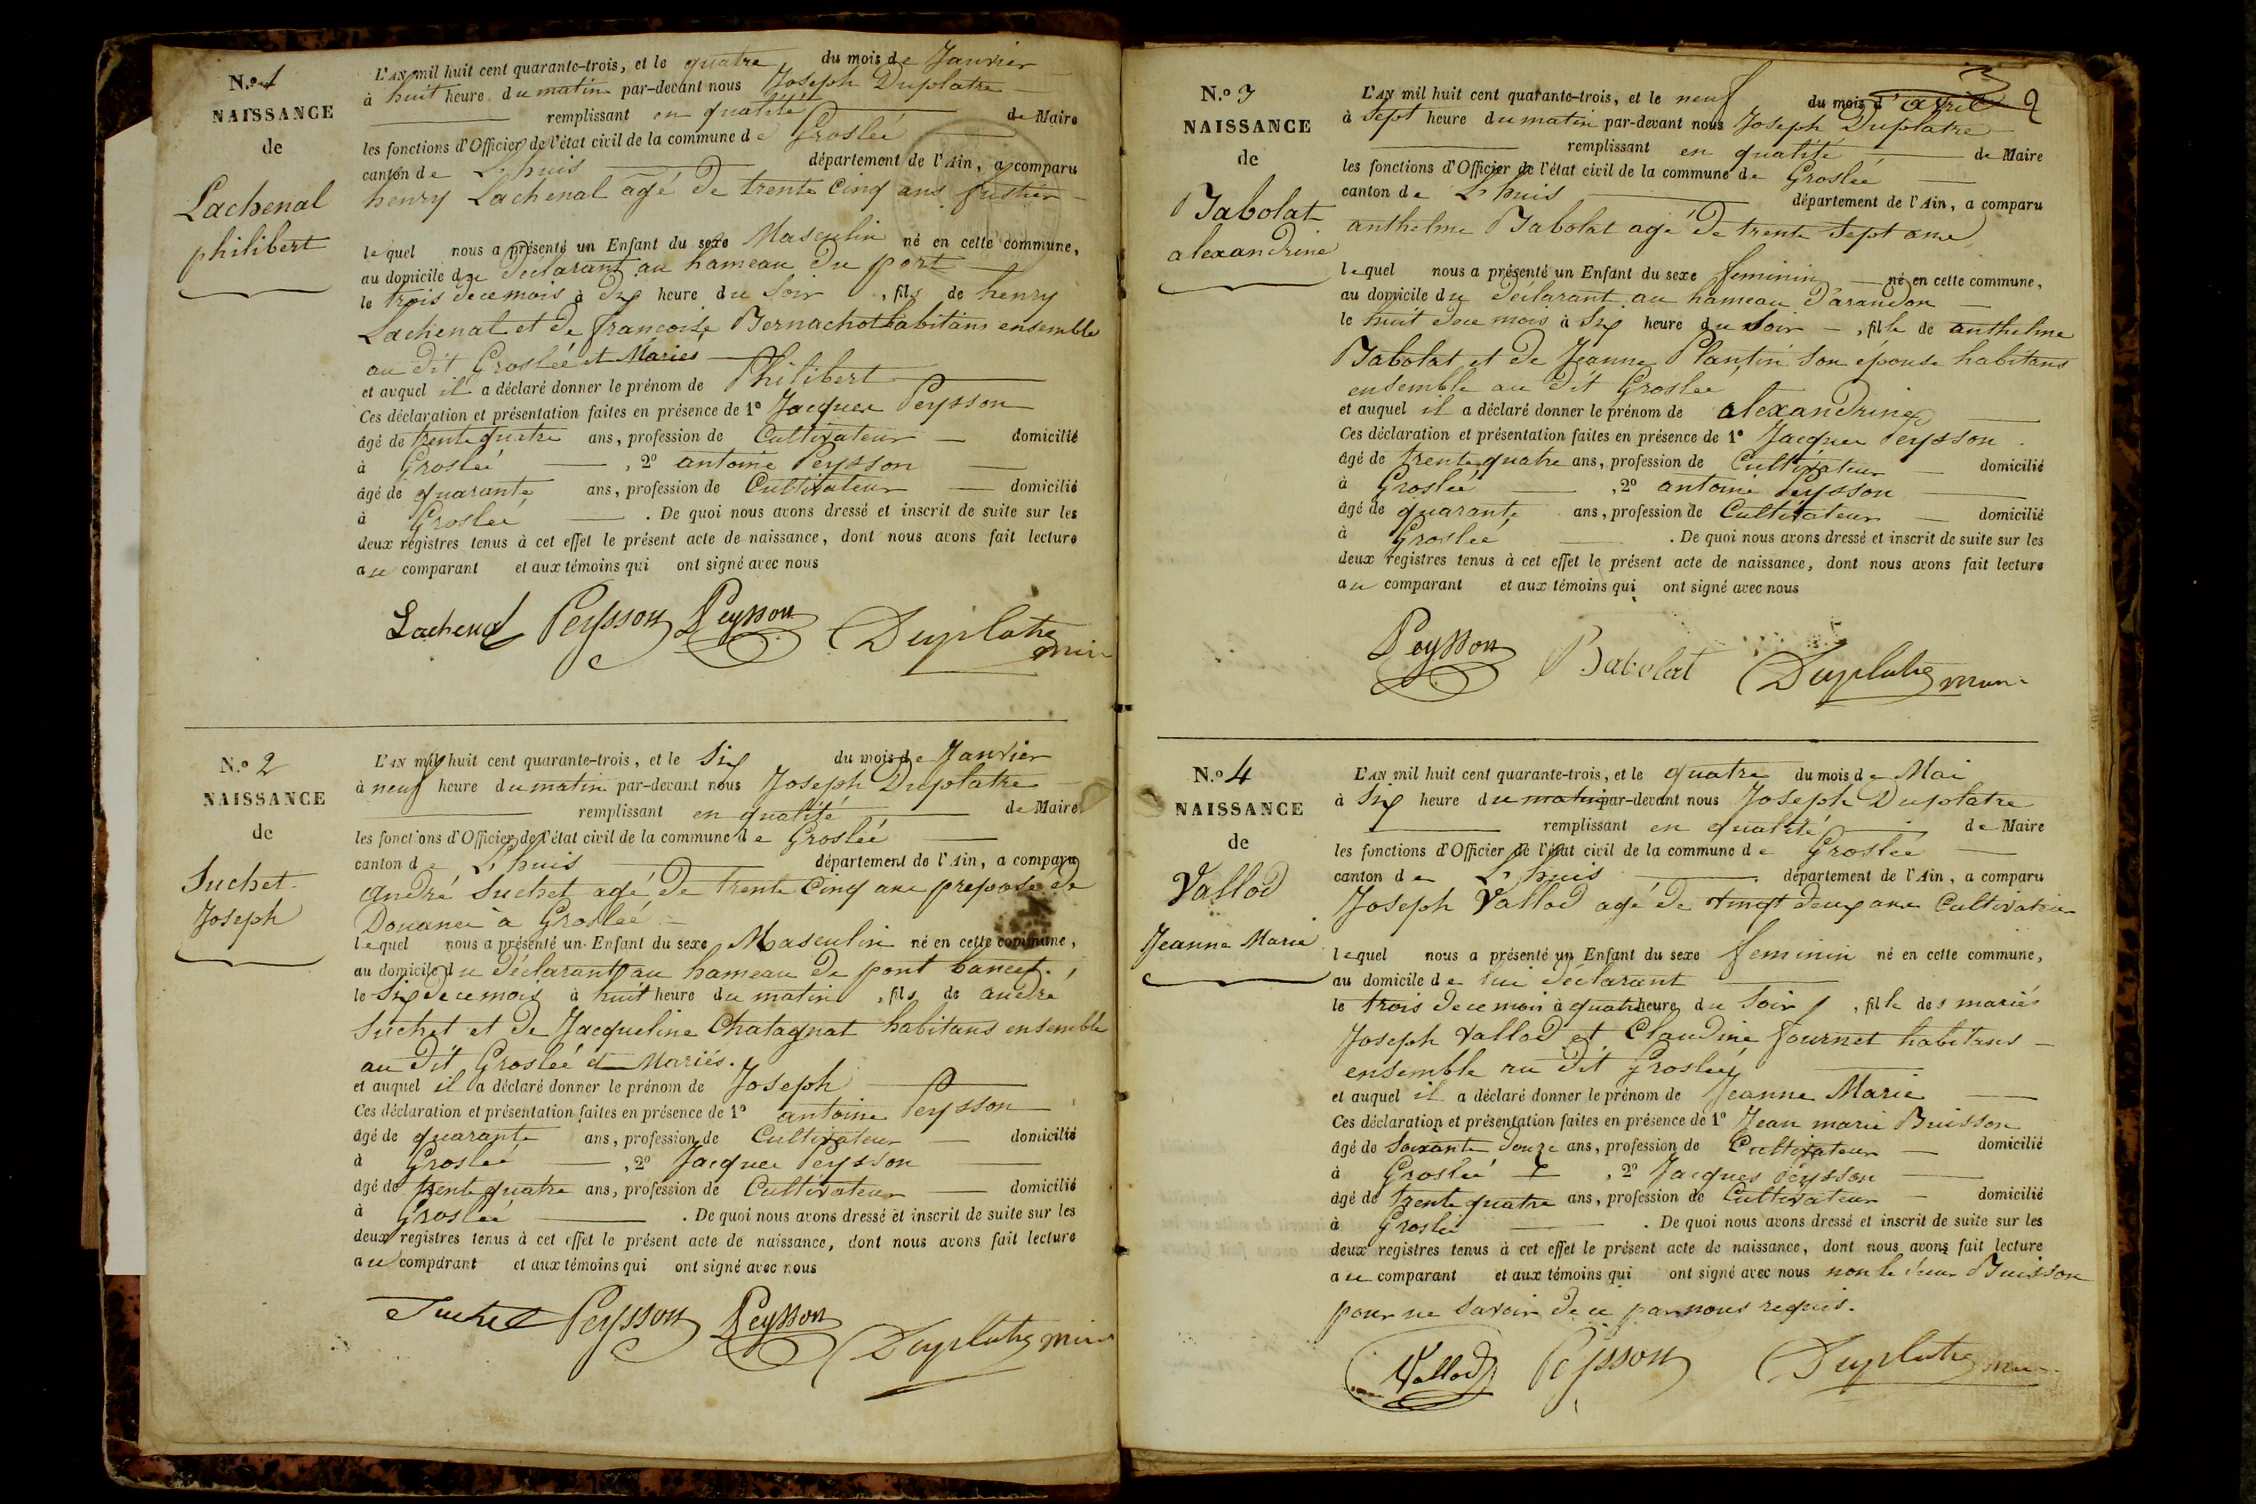 N.º 1
NAISSANCE
de
Lachenal
philibert
L'AN mil huit cent quarante-trois, et le quatre du mois de Janvier
à huit heure du matin par-devant nous Joseph Duplatre
remplissant en qualité de Maire
les fonctions d'Officier de l'état civil de la commune de Groslée
canton de L'huis département de l'Ain, a comparu
henry Lachenal agé de trente cinq ans
lequel nous a présenté un Enfant du sexe Masculin né en cette commune,
au domicile du déclarant au hameau du port
le trois de ce mois à dix heure du soir, fils de henry
Lachenal et de françoise Bernachot habitans ensemble
au dit Groslée et Mariés
et auquel il a déclaré donner le prénom de Philibert
Ces déclaration et présentation faites en présence de 1º Jacques Peysson
âgé de trente quatre ans, profession de Cultivateur domicilié
à Groslée, 2º antoine Peysson
âgé de quarante ans, profession de Cultivateur domicilié
à Groslée. De quoi nous avons dressé et inscrit de suite sur les
deux registres tenus à cet effet le présent acte de naissance, dont nous avons fait lecture
au comparant et aux témoins qui ont signé avec nous
Lachenal Peysson Peysson Duplatre
N.º 2
NAISSANCE
de
Suchet
Joseph
L'AN mil huit cent quarante-trois, et le Six du mois de Janvier
à neuf heure du matin par-devant nous Joseph Duplatre
remplissant en qualité de Maire
les fonctions d'Officier de l'état civil de la commune de Groslée
canton de L'huis département de l'Ain, a comparu
andré Suchet agé de trente cinq ans preposé de
Douanes à Groslée
lequel nous a présenté un Enfant du sexe Masculin né en cette commune,
au domicile du déclarant au hameau de pont bancet
le Six de ce mois à huit heure du matin, fils de andré
Suchet et de Jacqueline Chatagnat habitans ensemble
au dit Groslée et Mariés.
et auquel il a déclaré donner le prénom de Joseph
Ces déclaration et présentation faites en présence de 1º antoine Peysson
âgé de quarante ans, profession de Cultivateur domicilié
à Groslée, 2º Jacques Peysson
âgé de trente quatre ans, profession de Cultivateur domicilié
à Groslée. De quoi nous avons dressé et inscrit de suite sur les
deux registres tenus à cet effet le présent acte de naissance, dont nous avons fait lecture
au comparant et aux témoins qui ont signé avec nous
Suchet Peysson Peysson Duplatre
2
N.º 3
NAISSANCE
de
Babolat
alexandrine
L'AN mil huit cent quarante-trois, et le neuf du mois d'avril
à sept heure du matin par-devant nous Joseph Duplatre
remplissant en qualité de Maire
les fonctions d'Officier de l'état civil de la commune de Groslée
canton de L'huis département de l'Ain, a comparu
anthelme Babolat agé de trente sept ans
lequel nous a présenté un Enfant du sexe feminin né en cette commune,
au domicile du déclarant au hameau d'arandon
le huit de ce mois à Six heure du Soir, fille de anthelme
Babolat et de Jeanne Plantin son épouse habitans
ensemble au dit Groslée
et auquel il a déclaré donner le prénom de alexandrine
Ces déclaration et présentation faites en présence de 1º Jacques Peysson
âgé de trente quatre ans, profession de Cultivateur domicilié
à Groslée, 2º antoine Peysson
âgé de quarante ans, profession de Cultivateur domicilié
à Groslée. De quoi nous avons dressé et inscrit de suite sur les
deux registres tenus à cet effet le présent acte de naissance, dont nous avons fait lecture
au comparant et aux témoins qui ont signé avec nous
Peysson Babolat Duplatre
N.º 4
NAISSANCE
de
Vallod
Jeanne Marie
L'AN mil huit cent quarante-trois, et le quatre du mois de Mai
à Six heure du matin par-devant nous Joseph Duplatre
remplissant en qualité de Maire
les fonctions d'Officier de l'état civil de la commune de Groslée
canton de L'huis département de l'Ain, a comparu
Joseph Vallod agé de vingt deux ans Cultivateur
lequel nous a présenté un Enfant du sexe feminin né en cette commune,
au domicile de lui déclarant
le trois de ce mois à quatre heure du Soir, fille des mariés
Joseph Vallod et Claudine fournet habitans
ensemble au dit Groslée
et auquel il a déclaré donner le prénom de Jeanne Marie
Ces déclaration et présentation faites en présence de 1º Jean marie Buisson
âgé de Soixante douze ans, profession de Cultivateur domicilié
à Groslée, 2º Jacques Peysson
âgé de trente quatre ans, profession de Cultivateur domicilié
à Groslée. De quoi nous avons dressé et inscrit de suite sur les
deux registres tenus à cet effet le présent acte de naissance, dont nous avons fait lecture
au comparant et aux témoins qui ont signé avec nous non le sieur Buisson
pour ne savoir de ce par nous requis.
Vallod Peysson Duplatre